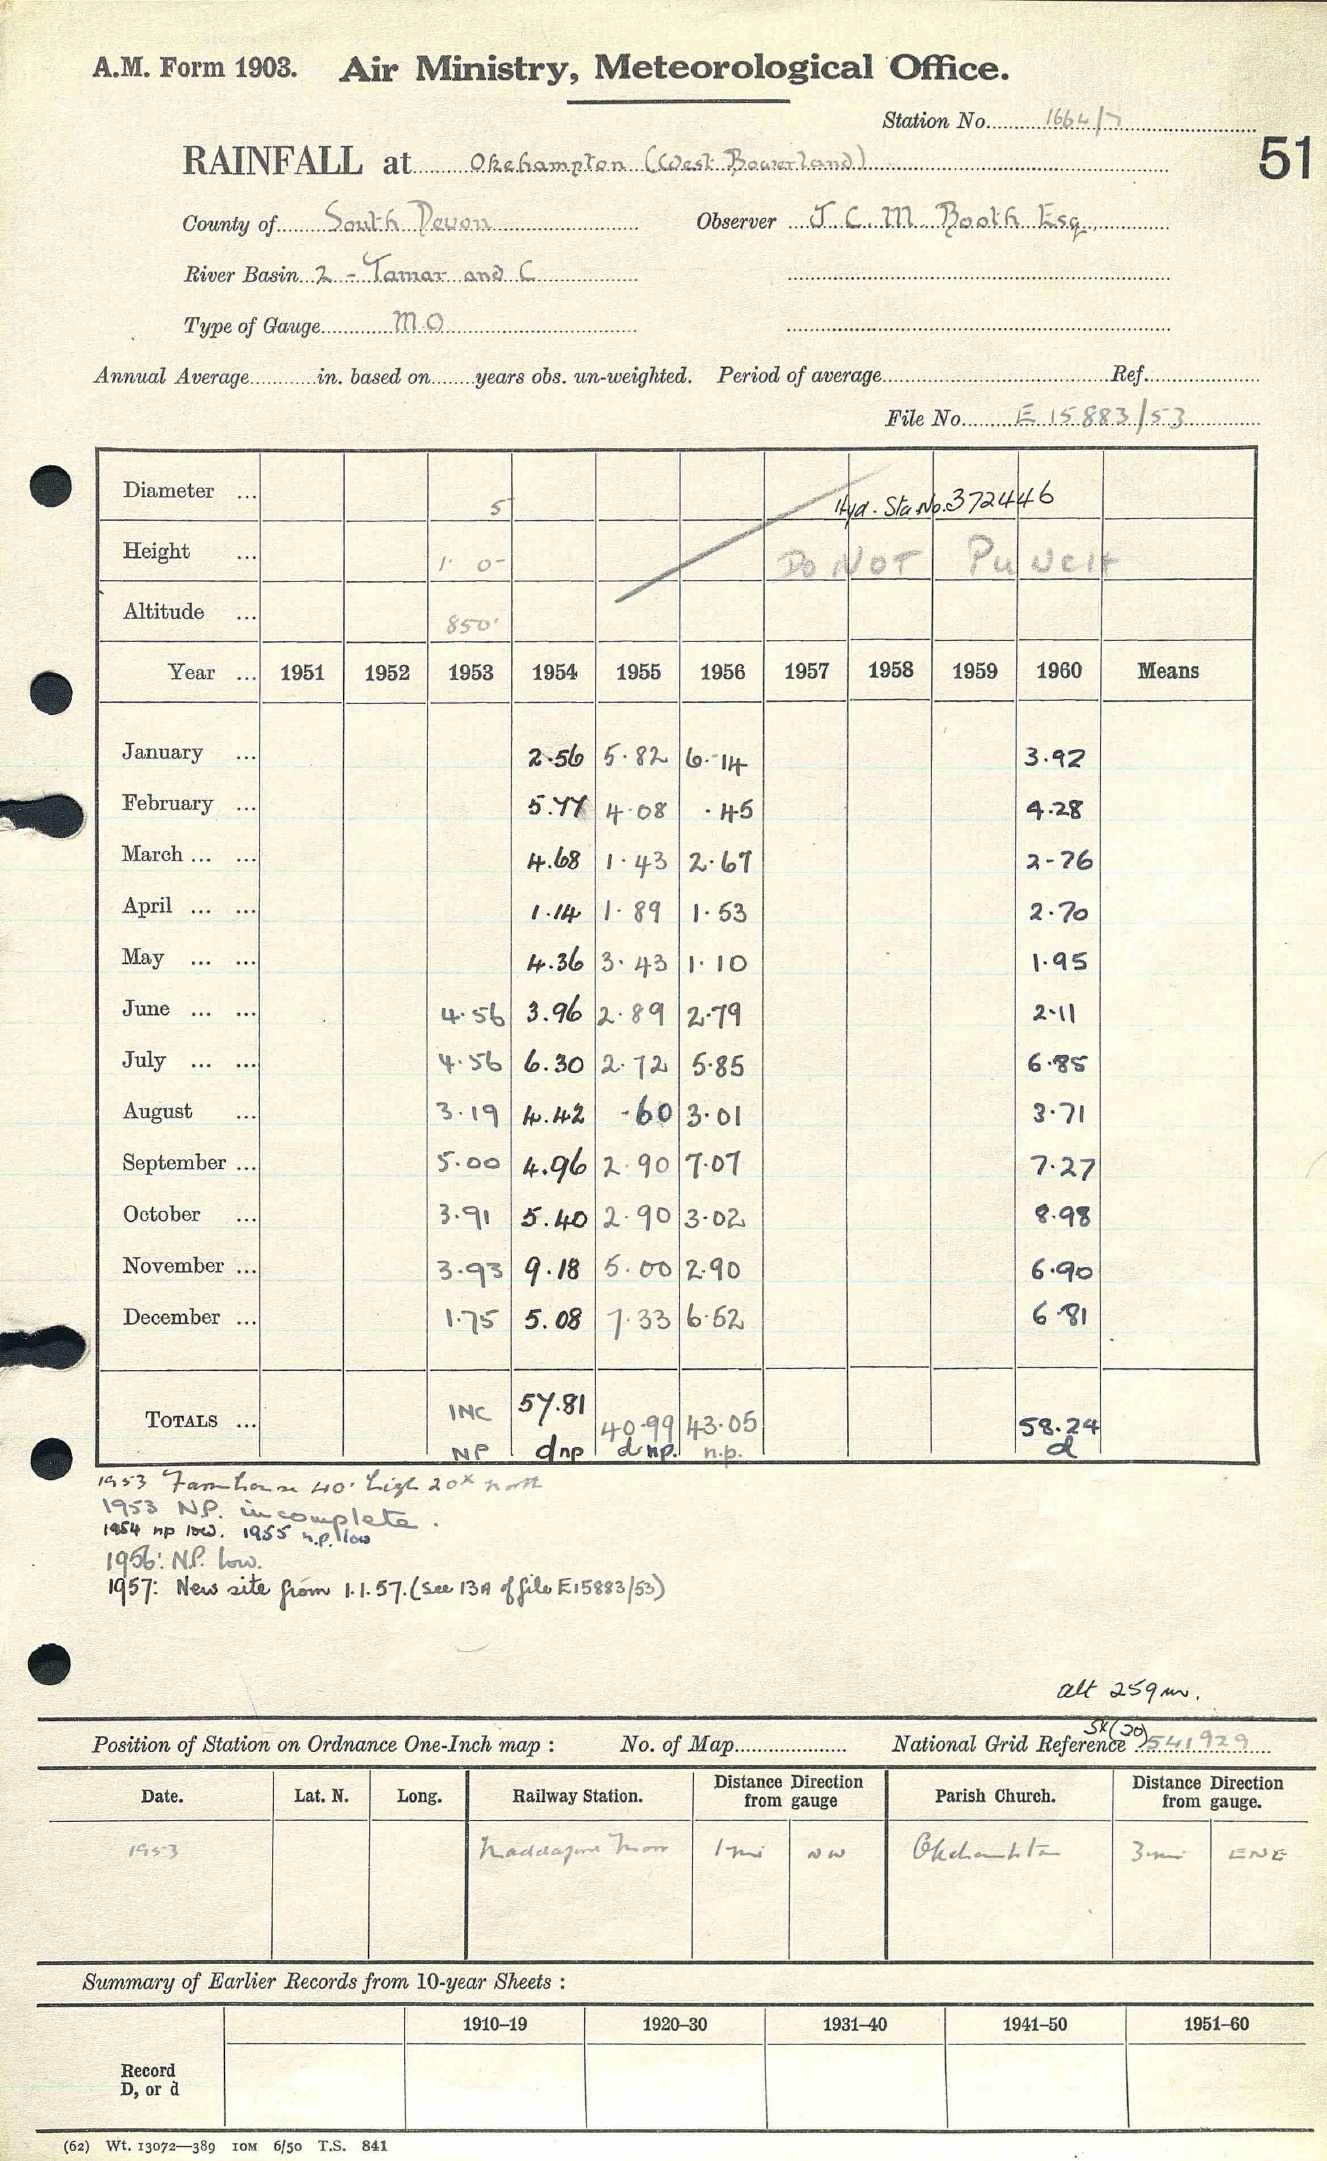 A.M. Form 1903. Air Ministry, Meteorological Office.
Station No. 1664/7
RAINFALL at Okehampton (West Bowerland)
51
County of South Devon Observer J. C. M. Booth Esq.,
River Basin 2 - Tamar and C
Type of Gauge M.O
Annual Average in. based on years obs. un-weighted. Period of average Ref.
File No. E 15883/53
Diameter ... 5 Hyd. Sta No. 372446
Height ... 1' 0" DO NOT PUNCH
Altitude ... 850'
Year ... 1951 1952 1953 1954 1955 1956 1957 1958 1959 1960 Means
January ... 2.56 5.82 6.14 3.92
February ... 5.77 4.08 .45 4.28
March ... ... 4.68 1.43 2.67 2.76
April ... ... 1.14 1.89 1.53 2.70
May ... ... 4.36 3.43 1.10 1.95
June ... ... 4.56 3.96 2.89 2.79 2.11
July ... ... 4.56 6.30 2.72 5.85 6.85
August ... 3.19 4.42 .60 3.01 3.71
September ... 5.00 4.96 2.90 7.07 7.27
October ... 3.91 5.40 2.90 3.02 8.98
November ... 3.93 9.18 5.00 2.90 6.90
December ... 1.75 5.08 7.33 6.52 6.81
TOTALS ... INC 57.81 40.99 43.05 58.24
NP dnp d np. n.p. d
1953 Farmhouse 40' high 20x north
1953 N.P. incomplete.
1954 np low. 1955 n.p. low
1956: N.P. low.
1957: New site from 1.1.57. (See 13A of file E15883/53)
alt 259m.
Position of Station on Ordnance One-Inch map : No. of Map National Grid Reference SX(20) 541929
Date. Lat. N. Long. Railway Station. Distance Direction from gauge Parish Church. Distance Direction from gauge.
1953 Maddaford Moor 1 mi NW Okehampton 3 mi ENE
Summary of Earlier Records from 10-year Sheets :
1910–19 1920–30 1931–40 1941–50 1951–60
Record
D, or d
(62) Wt. 13072—389 10M 6/50 T.S. 841